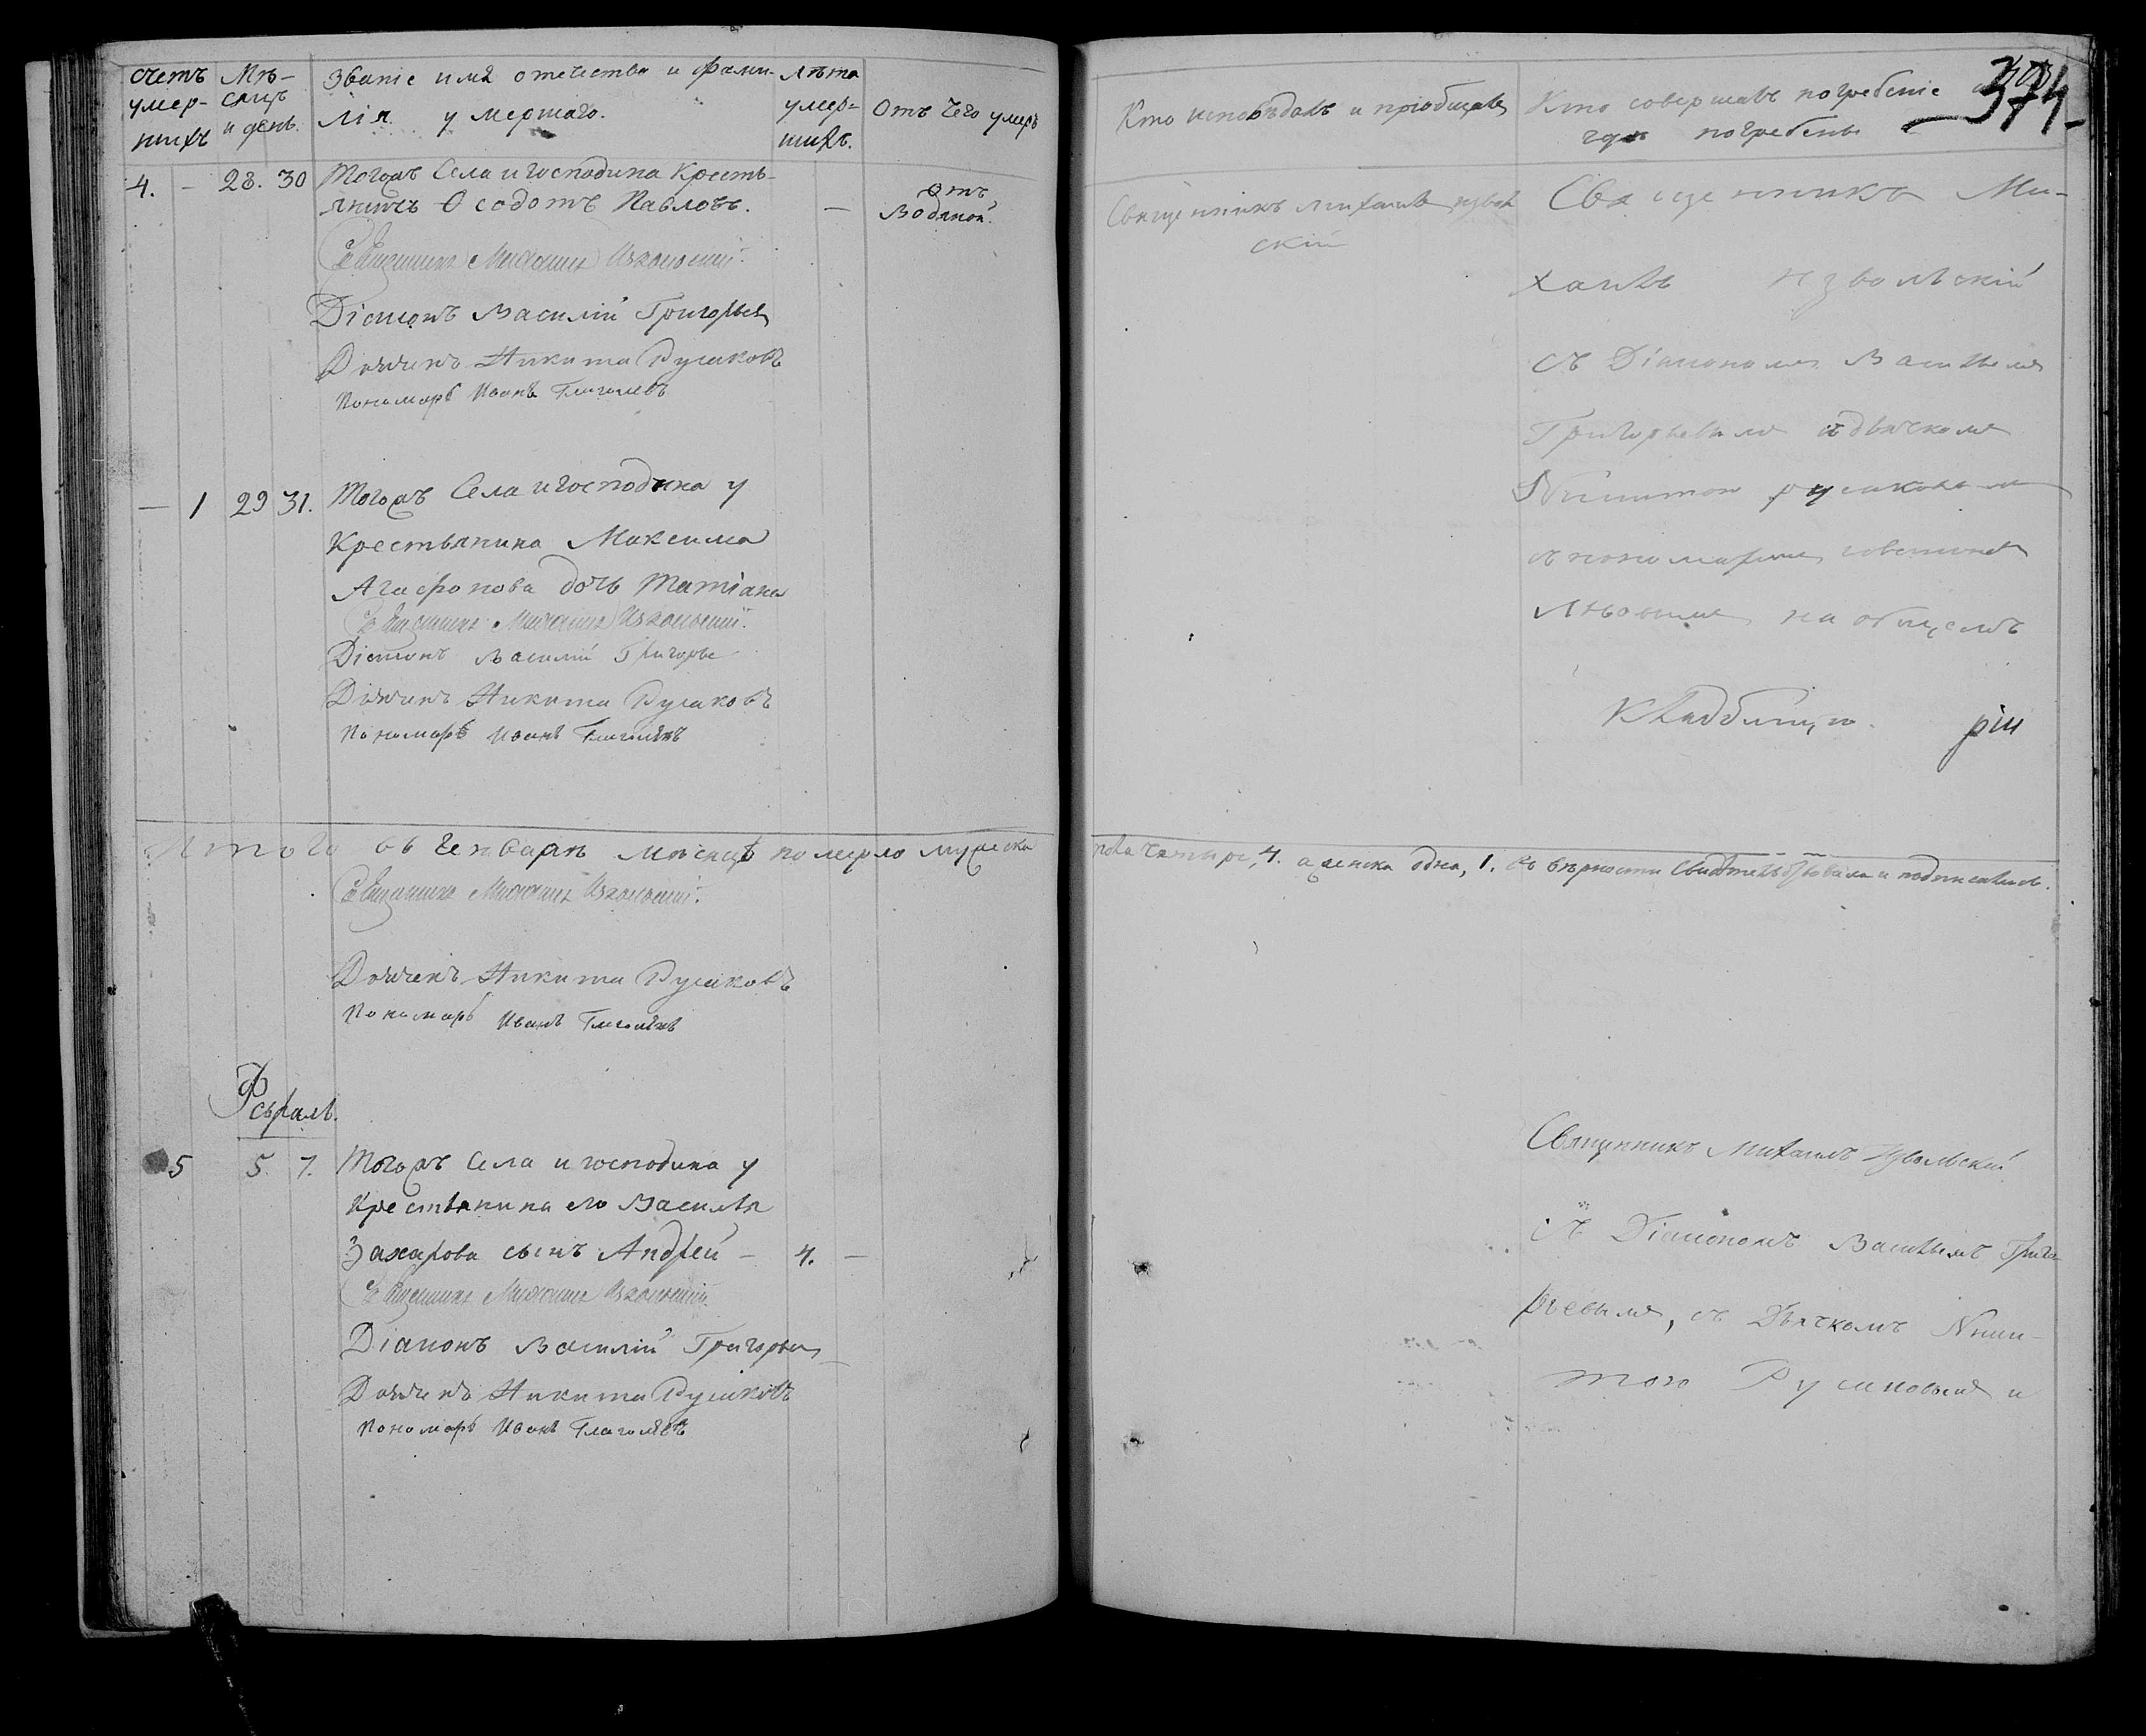 счетъ умер- шихъ
Мѣ- сяцъ и день.
Званіе имя отечество и фами- лія умершаго.
Лѣта умер- шихъ.
Отъ чего умеръ
4. – 28. 30 Тогожъ Села и господина Кресть-
янинъ Ѳеодотъ Павловъ. — Отъ Водяной.
Священникъ Михаилъ Извольскій.
Діаконъ Василій Григорьевъ
Дьячекъ Никита Русаковъ
Пономарь Иванъ Глаголевъ
— 1 29 31. Тогожъ Села и господина у
Крестьянина Максима
Агафонова дочь Татіана
Священникъ Михаилъ Извольскій.
Діаконъ Василій Григорье
Дьячекъ Никита Русаковъ
Пономарь Иванъ Глаголевъ
Итого въ Генварѣ мѣсяцѣ померло мужеска
Священникъ Михаилъ Извольскій.
Дьячекъ Никита Русаковъ
Пономарь Иванъ Глаголевъ
Февраль.
5 5. 7. Тогожъ Села и господина у
Крестьянина его Василья
Захарова сынъ Андрей – 4. —
Священникъ Михаилъ Извольскій.
Діаконъ Василій Григорьевъ
Дьячекъ Никита Русаковъ
Пономарь Иванъ Глаголевъ
Кто исповѣдалъ и пріобщалъ
Кто совершалъ погребеніе и
гдѣ погребены
374
Священникъ михаилъ изволь
скій
Священникъ Ми-
хаилъ извольскій
съ Діакономъ Василіемъ
Григорьевымъ и дьячкомъ
Никитою русаковымъ
и пономаремъ
на общемъ
Кладбищѣ.
рои
пола четыре, 4. а женска одна, 1. въ вѣрности свидѣтельствовали и подписались.
Священникъ Михаилъ Извольскій
съ Діакономъ Василіемъ Григо
рьевымъ, съ Дьячкомъ Ники-
тою Русаковымъ и